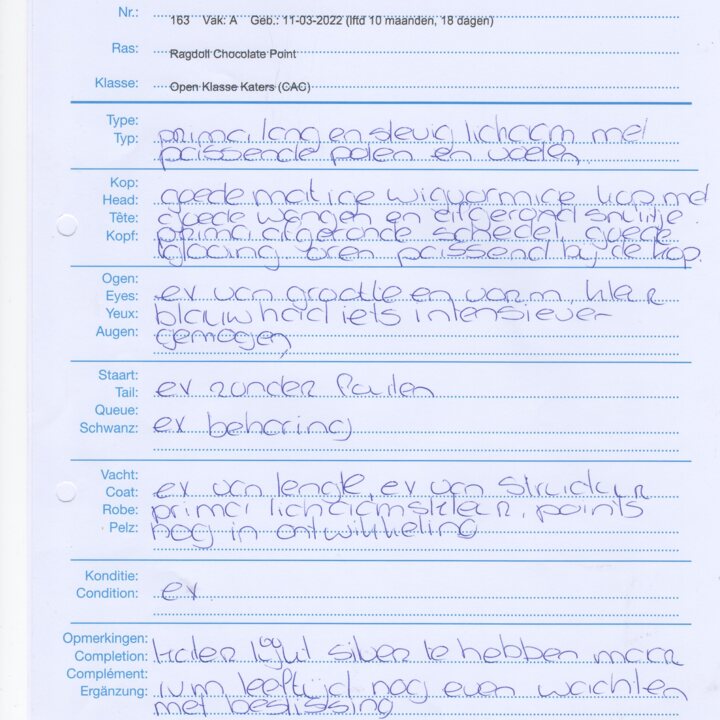 Nr.: 163 Vak: A Geb.: 11-03-2022 (lftd 10 maanden, 18 dagen)
Ras: Ragdoll Chocolate Point
Klasse: Open Klasse Katers (CAC)
Type:
Typ:
prima lang en stevig lichaam met
passende poten en voeten
Kop:
Head:
Tête:
Kopf:
goede matige wigvormige kop met
goede wangen en afgerond snuitje
prima afgeronde schedel, goede
glooiing oren passend bij de kop.
Ogen:
Eyes:
Yeux:
Augen:
ex van grootte en vorm, kleur
blauw had iets intensiever
gemogen
Staart:
Tail:
Queue:
Schwanz:
ex zonder fouten
ex beharing
Vacht:
Coat:
Robe:
Pelz:
ex van lengte, ex van structuur
prima lichaamskleur, points
nog in ontwikkeling
Konditie:
Condition:
ex
Opmerkingen:
Completion:
Complément:
Ergänzung:
kater lijkt silver te hebben maar
ivm leeftijd nog even wachten
met beslissing